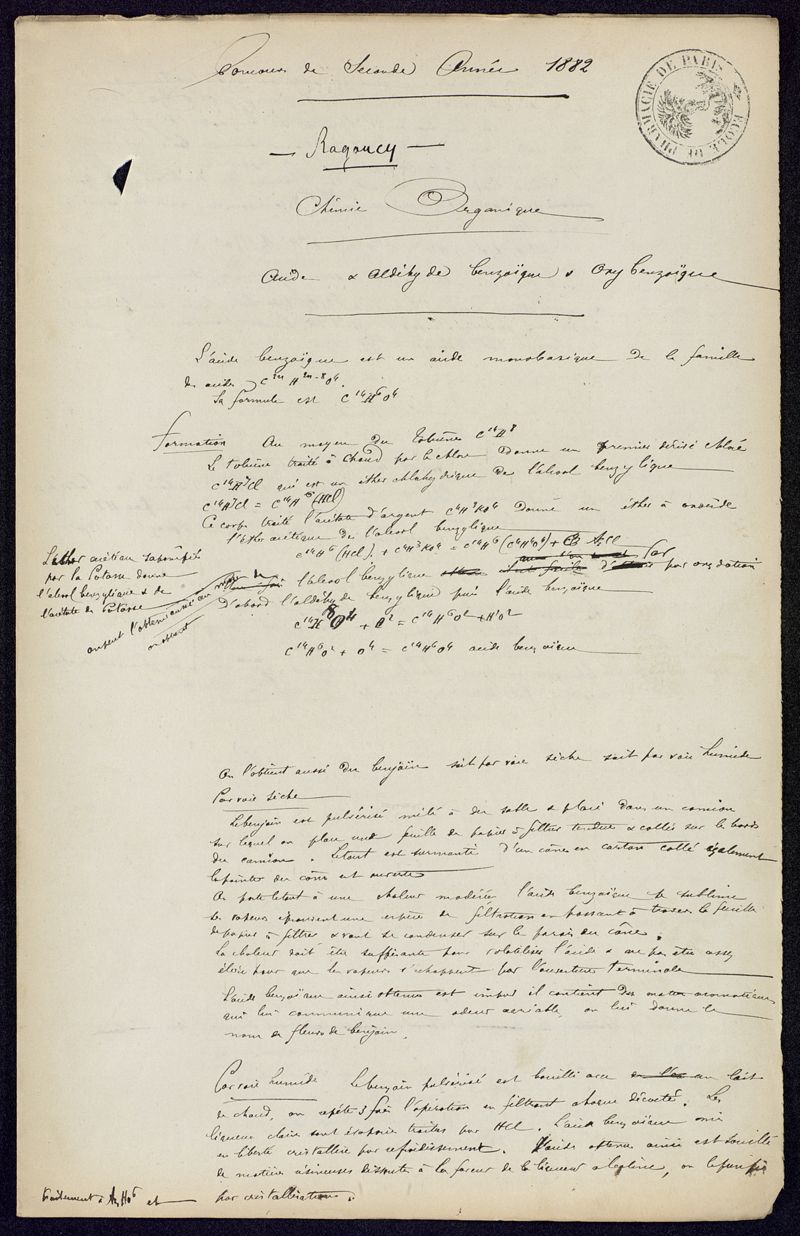 Concours de Seconde Année 1882
ÉCOLE DE PHARMACIE DE PARIS
— Ragoucy —
Chimie Organique
Acide & Aldéhyde benzoïque & Oxybenzoïque
L'acide benzoïque est un acide monobasique de la famille
des acides C²ⁿ H²ⁿ⁻⁸ O⁴.
Sa formule est C¹⁴H⁶O⁴
Formation Au moyen du Toluène C¹⁴H⁸
Le toluène traité à chaud par le chlore donne un premier dérivé chloré
C¹⁴H⁷Cl qui est un éther chlorhydrique de l'alcool benzylique
C¹⁴H⁷Cl = C¹⁴H⁶(HCl)
Ce corps traité l'acétate d'argent C⁴H³AgO⁴ donne un éther
l'éther acétique de l'alcool benzylique
C¹⁴H⁶(HCl) + = C¹⁴H⁶(C⁴H⁴O⁴) + Cl
L'éther acétique saponifié
par la Potasse donne
l'alcool benzylique & de
l'acétate de Potasse
on peut l'obtenir aussi au moyen de
en obtient
l'alcool benzylique par oxydation
d'abord l'aldéhyde benzylique puis l'acide benzoïque
C¹⁴H⁸O² + O² = C¹⁴H⁶O² + H²O²
C¹⁴H⁶O² + O² = C¹⁴H⁶O⁴ acide benzoïque
On l'obtient aussi du benjoin soit par voie sèche soit par voie humide
Par voie sèche
Le benjoin est pulvérisé mêlé à du sable & placé dans un camion
sur lequel on place une feuille de papier à filtrer tendue & collée sur les bords
du camion. Le tout est surmonté d'un cône en carton collé également
la pointe du cône est ouverte
On porte le tout à une chaleur modérée l'acide benzoïque se sublime
les vapeurs éprouvent une espèce de filtration en passant à travers la feuille
de papier à filtrer & vont se condenser sur les parois du cône.
La chaleur doit être suffisante pour volatiliser l'acide & ne pas être assez
élevée pour que les vapeurs s'échappent par l'ouverture terminale
L'acide benzoïque ainsi obtenu est impur il contient des matières aromatiques
qui lui communiquent une odeur agréable, on lui donne le
nom de fleurs de benjoin.
Par voie humide Le benjoin pulvérisé est bouilli avec un lait
de chaux, on répète 3 fois l'opération en filtrant chaque décocté. Les
liqueurs claires sont évaporées traitées par HCl. L'acide benzoïque mis
en liberté cristallise par refroidissement. L'acide obtenu ainsi est souillé
de matières résineuses dissoutes à la faveur de la liqueur alcaline, on le purifie
traitement à AzHO⁶ et par cristallisations.